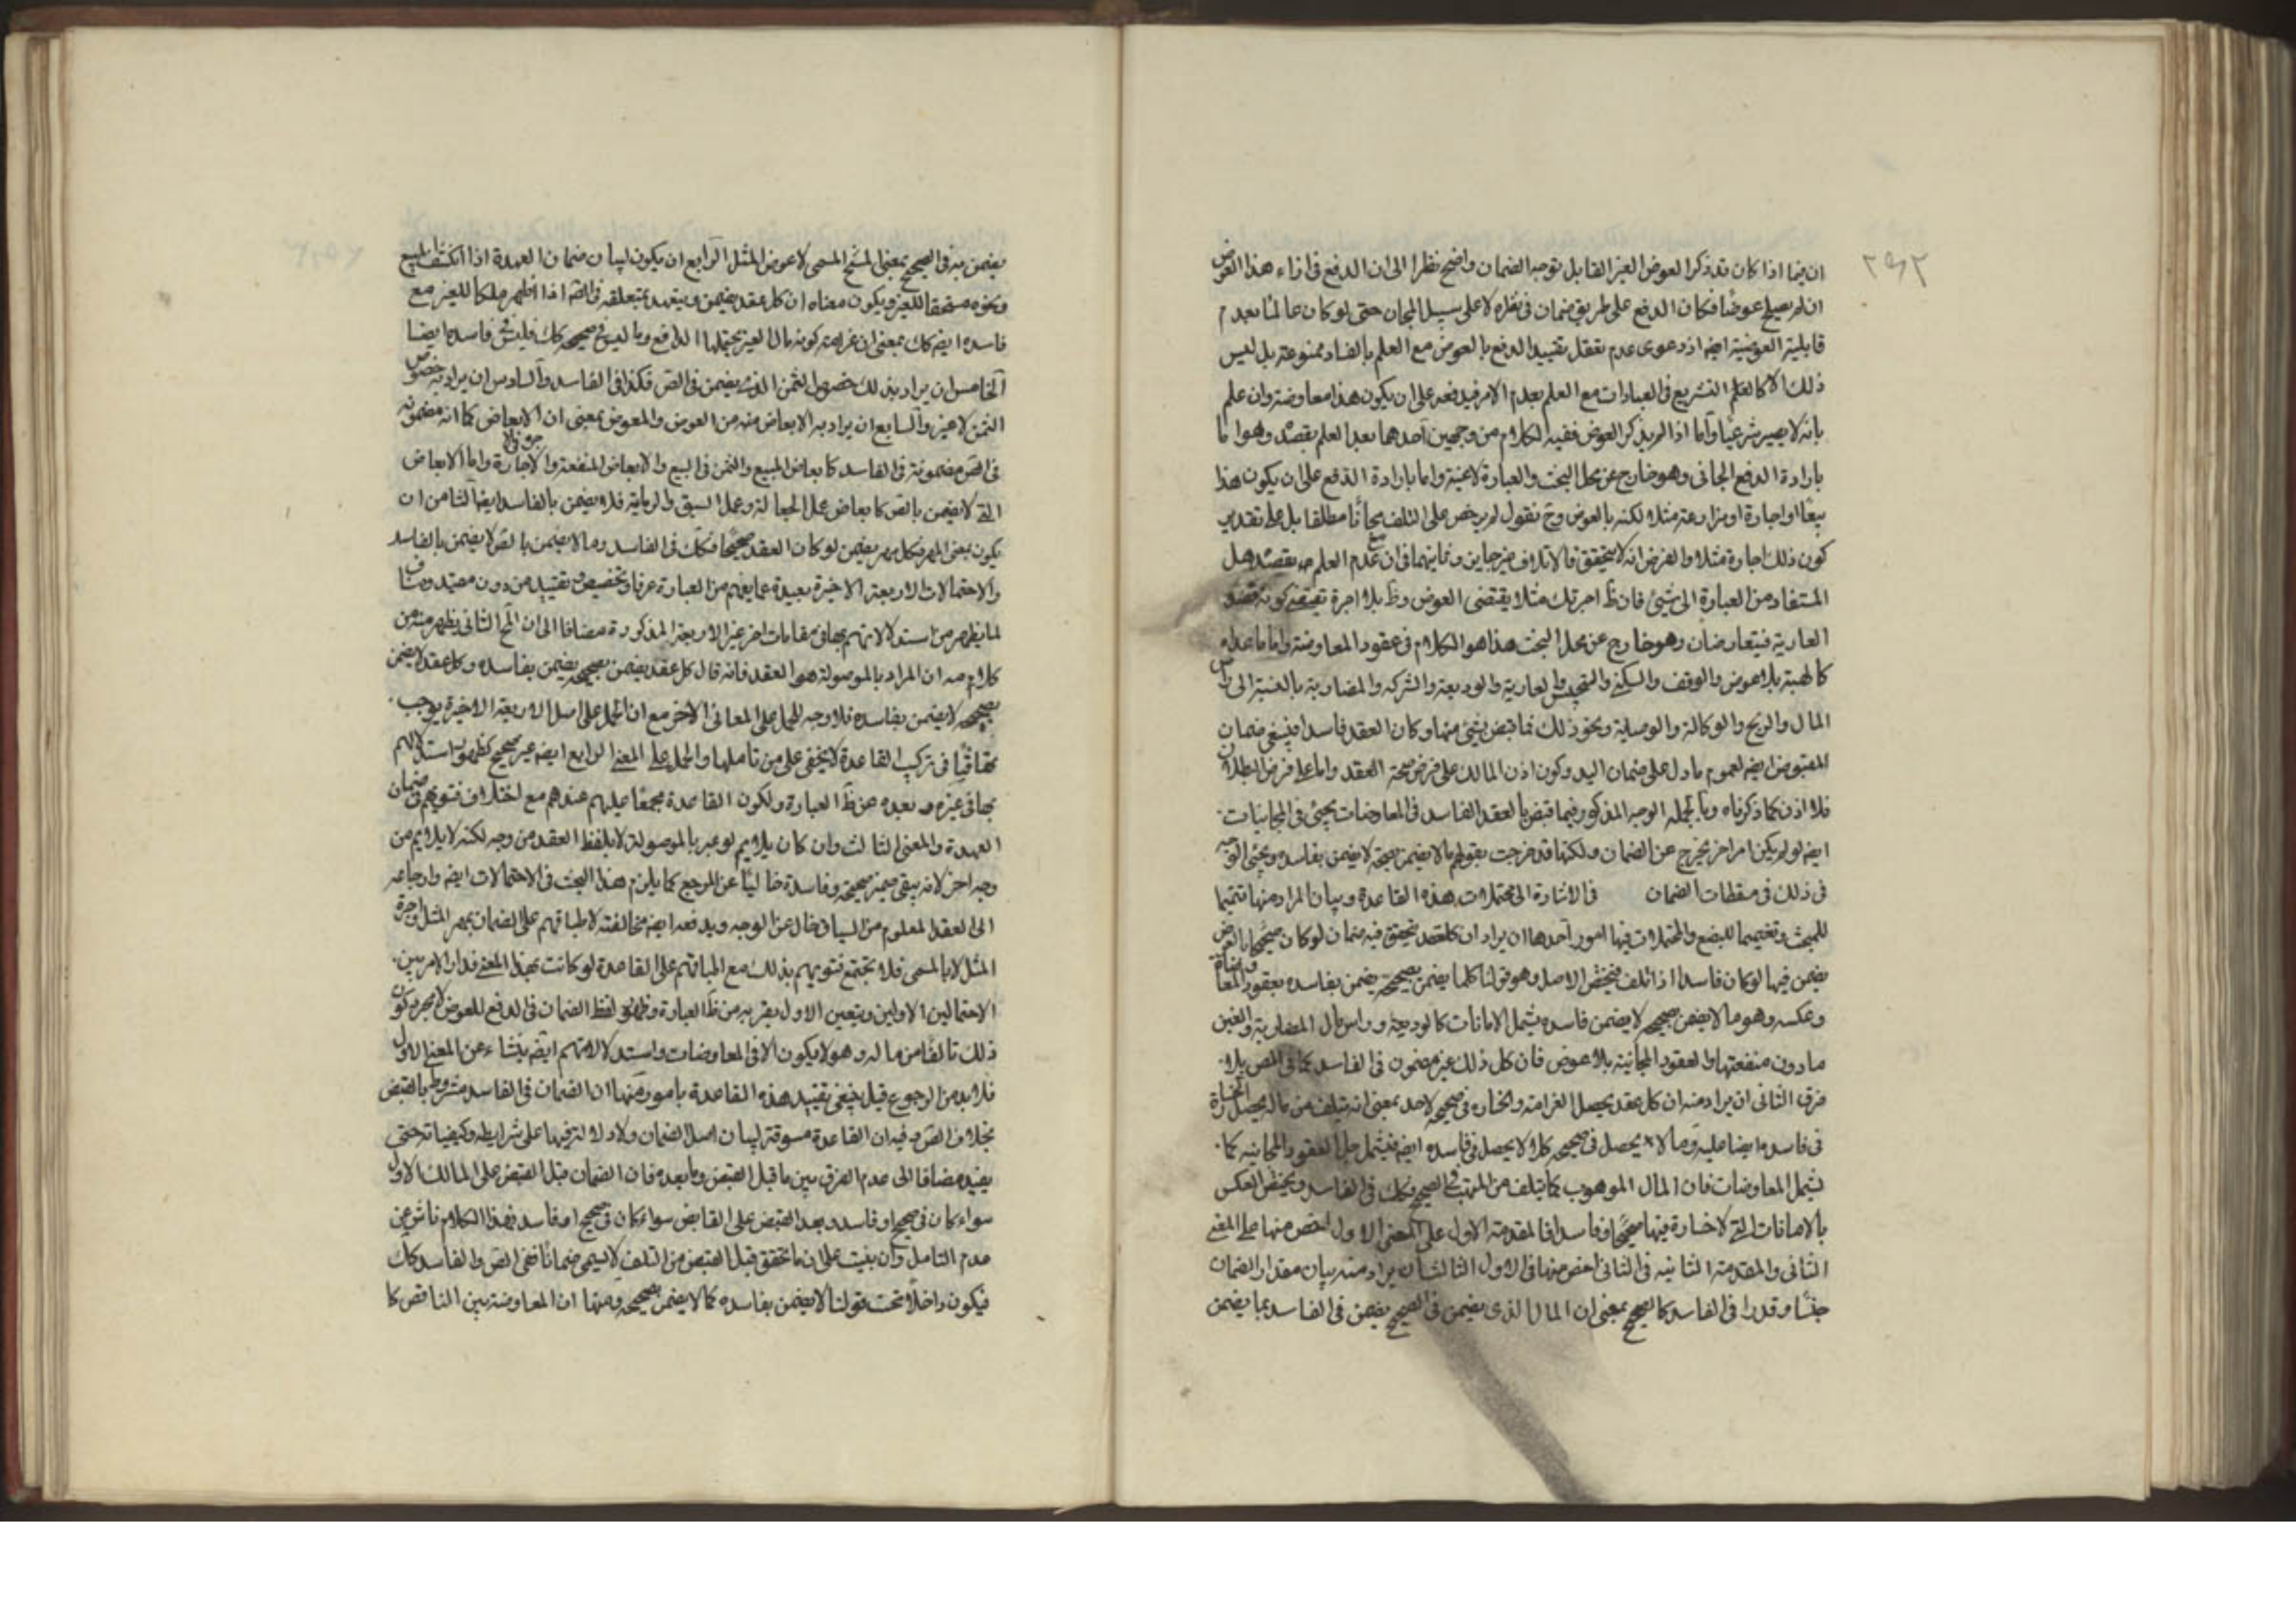 ان فيما اذا كان قد ذكر العوض الغير القابل توجه الضمان واضح نظرا الى ان الدفع في ازاء هذا العوض
ان لم يصلح عوضا فكان الدفع على طريق ضمان في نظره لا على سبيل المجان حتى لو كان عالما بعدم
قابلية العوضية ايضه اذ دعوى عدم تعقل تقييد الدفع بالعوض مع العلم بالفساد ممنوعة بل ليس
ذلك الا كالعلم التشريع في العبادات مع العلم بعدم الامر فيدفعه على ان يكون هذا معاوضة وان علم
بانه لا يصير شرعيا واما اذا لم يذكر العوض ففيه الكلام من وجهين احدهما بعد العلم بقصده وهو اما
بارادة الدفع المجاني وهو خارج عن محل البحث والعبارة لاغية واما بارادة الدفع على ان يكون هذا
بيعا او اجارة او مزارعة مثلا لكنه بالعوض وح نقول لم يرخص على التلف مجانا مطلقا بل على تقدير
كون ذلك اجارة مثلا والفرض انه لا يتحقق فالاتلاف غير جايز وثانيهما في ان مع عدم العلم بقصده هل
المستفاد من العبارة الى شيئ فان ظ اجرتك مثلا يقتضي العوض وظ بلا اجرة تقتضي كونه قصد
العارية فيتعارضان وهو خارج عن محل البحث هذا هو الكلام في عقود المعاوضة واما ما عداه
كالهبة بلا عوض والوقف والسكنى والتحبيس والعارية والوديعة والشركة والمضاربة بالنسبة الى راس
المال والربح والوكالة والوصاية ونحو ذلك فما قبض بشيئ منها وكان العقد فاسدا فينبغي ضمان
المقبوض ايضه لعموم ما دل على ضمان اليد وكون اذن المالك على فرض صحة العقد واما على فرض البطلان
فلا اذن كما ذكرناه وبالجملة الوجه المذكور فيما قبض بالعقد الفاسد في المعاوضات يجيئ في المجانيات
ايضه لو لم يكن امر اخر يخرج عن الضمان ولكنها قد خرجت بقولهم ما لا يضمن بصحيحه لا يضمن بفاسده ويجيئ التوجه
في ذلك في مسقطات الضمان في الاشارة الى محتملات هذه القاعدة وبيان المراد منها تتميما
للمبحث وتعميما للبضع والمحتملات فيها امور احدها ان يراد ان كل عقد تحقق فيه ضمان لو كان صحيحا بالعوض
يضمن فيها لو كان فاسدا اذا تلف فيختص الاصل وهو قولنا كلما يضمن بصحيحه يضمن بفاسده بعقود المعاوضة
وعكسه وهو ما لا يضمن بصحيحه لا يضمن فاسده يشمل الامانات كالوديعة وراس مال المضاربة والعين
مادون منفعتها والعقود المجانية بلا عوض فان كل ذلك غير مضمون في الفاسد كما في الصحيح بلا
فرق الثاني ان يراد منه ان كل عقد يحصل الغرامة والخسارة في صحيحه لاحد بمعنى انه يتلف من ماله يحصل الخسارة
في فاسده ايضا عليه وما لا يحصل في صحيحه كلا لا يحصل في فاسده ايضه فيشمل جل العقود المجانية كما
يشمل المعاوضات فان المال الموهوب كما يتلف من المتهب في الصحيح فكك في الفاسد ويختص العكس
بالامانات التي لا خسارة فيها صحيحا وفاسدا فالمقدمة الاولى على المعنى الاول اخص منها على المعنى
الثاني والمقدمة الثانيه في الثاني اخص منها في الاول الثالث ان يراد منه بيان مقدار الضمان
جنسا وقدرا في الفاسد كالصحيح بمعنى ان المال الذي يضمن في الصحيح يضمن في الفاسد بما يضمن
يضمن به في الصحيح بمعنى المسمى لا عوض المثل الرابع ان يكون لبيان ضمان العهدة اذا انكشف المبيع
ونحوه مستحقا للغير ويكون معناه ان كل عقد يضمن ويتعهد بمتعلقه في الصحة اذا ظهر ملكا للغير مع
فاسده ايضه كك بمعنى ان غرامته كونه مال الغير يحتملها الدافع وما ليس في صحيحه كك فليس في فاسده ايضا
الخامس ان يراد بذلك خصوص الثمن الذي يضمن في الصحيح فكذا في الفاسد والسادس ان يراد به خصوص
الثمن لا غير والسابع ان يراد به الابعاض منه من العوض والمعوض بمعنى ان الابعاض كما انه مضمونه
في الصحيح مضمونة في الفاسد كابعاض المبيع والثمن في البيع والابعاض المنفعة والاجرة في الاجارة واما الابعاض
التي لا يضمن بالصحيح كابعاض عمل الجعالة وعمل السبق والرماية فلا يضمن بالفاسد ايضا الثامن ان
يكون بمعنى المهر فكل مهر يضمن لو كان العقد صحيحا فكك في الفاسد وما لا يضمن بالصحيح لا يضمن بالفاسد
والاحتمالات الاربعة الاخيرة بعيدة عما يفهم من العبارة عرفا وتخصيص وتقييد من دون مقيد ومناف
لما يظهر من استدلالاتهم بها في مقامات اخر غير الاربعة المذكورة مضافا الى ان المح الثاني يظهر منه من
كلامه ان المراد بالموصولة هو العقد فانه قال كل عقد يضمن بصحيحه يضمن بفاسده وكل عقد لا يضمن
بصحيحه لا يضمن بفاسده فلا وجه للحمل على المعاني الاخر مع ان الحمل على اصل الاربعة الاخيرة يوجب
تهافتا في تركيب القاعدة لا يخفى على من تاملها والحمل على المعنى الرابع ايضه غير صحيح لظهور استدلالهم
بها في غيره وبعده عن ظ العبارة ولكون القاعدة مجمعا عليهم عندهم مع اختلاف فتويهم في ضمان
العهدة والمعنى الثالث وان كان يلايم لو عبر بالموصولة لا بلفظ العقد من وجه لكنه لا يلايم من
وجه اخر لانه يبقى ضمير صحيحه وفاسده خاليا عن المرجع كما يلزم هذا البحث في الاحتمالات ايضه وارجاعه
الى العقد المعلوم من السياق خال عن الوجه ويدفعه ايضه مخالفته لاطباقهم على الضمان بمهر المثل واجرة
المثل لا بالمسمى فلا تجتمع فتويهم بذلك مع اطباقهم على القاعدة لو كانت بهذا المعنى فدار الامر بين
الاحتمالين الاولين ويتعين الاول بقربه من ظ العبارة وظهور لفظ الضمان في الدفع للعوض لا مجرد كون
ذلك تالفا من ماله وهو لا يكون الا في المعاوضات واستدلالاتهم ايضه ينشاء عن المعنى الاول
فلا بد من الرجوع قيل ينبغي تقييد هذه القاعدة بامور منها ان الضمان في الفاسد مشروط بالقبض
بخلاف الصحيح وفيه ان القاعدة مسوقة لبيان اصل الضمان ولا دلالة فيها على شرايطه وكيفياته حتى
يقيد مضافا الى عدم الفرق بين ما قبل القبض وما بعده فان الضمان قبل القبض على المالك الاول
سواء كان في صحيح او فاسد وبعد القبض على القابض سواء كان في صحيح او فاسد فهذا الكلام ناش عن
عدم التامل وان بنيت على ان ما تحقق قبل القبض من التلف لا يسمى ضمانا ففي الصحيح والفاسد كك
فيكون داخلا تحت قولنا لا يضمن بفاسده كما لا يضمن بصحيحه ومنها ان المعاوضة بين الناقص كا